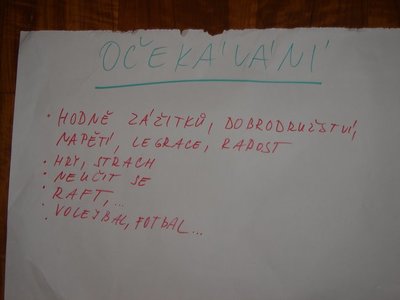 OČEKÁVÁNÍ
• HODNĚ ZÁŽITKŮ, DOBRODRUŽSTVÍ,
NAPĚTÍ, LEGRACE, RADOST
• HRY, STRACH
• NEUČIT SE
• RAFT, ...
• VOLEJBAL, FOTBAL...